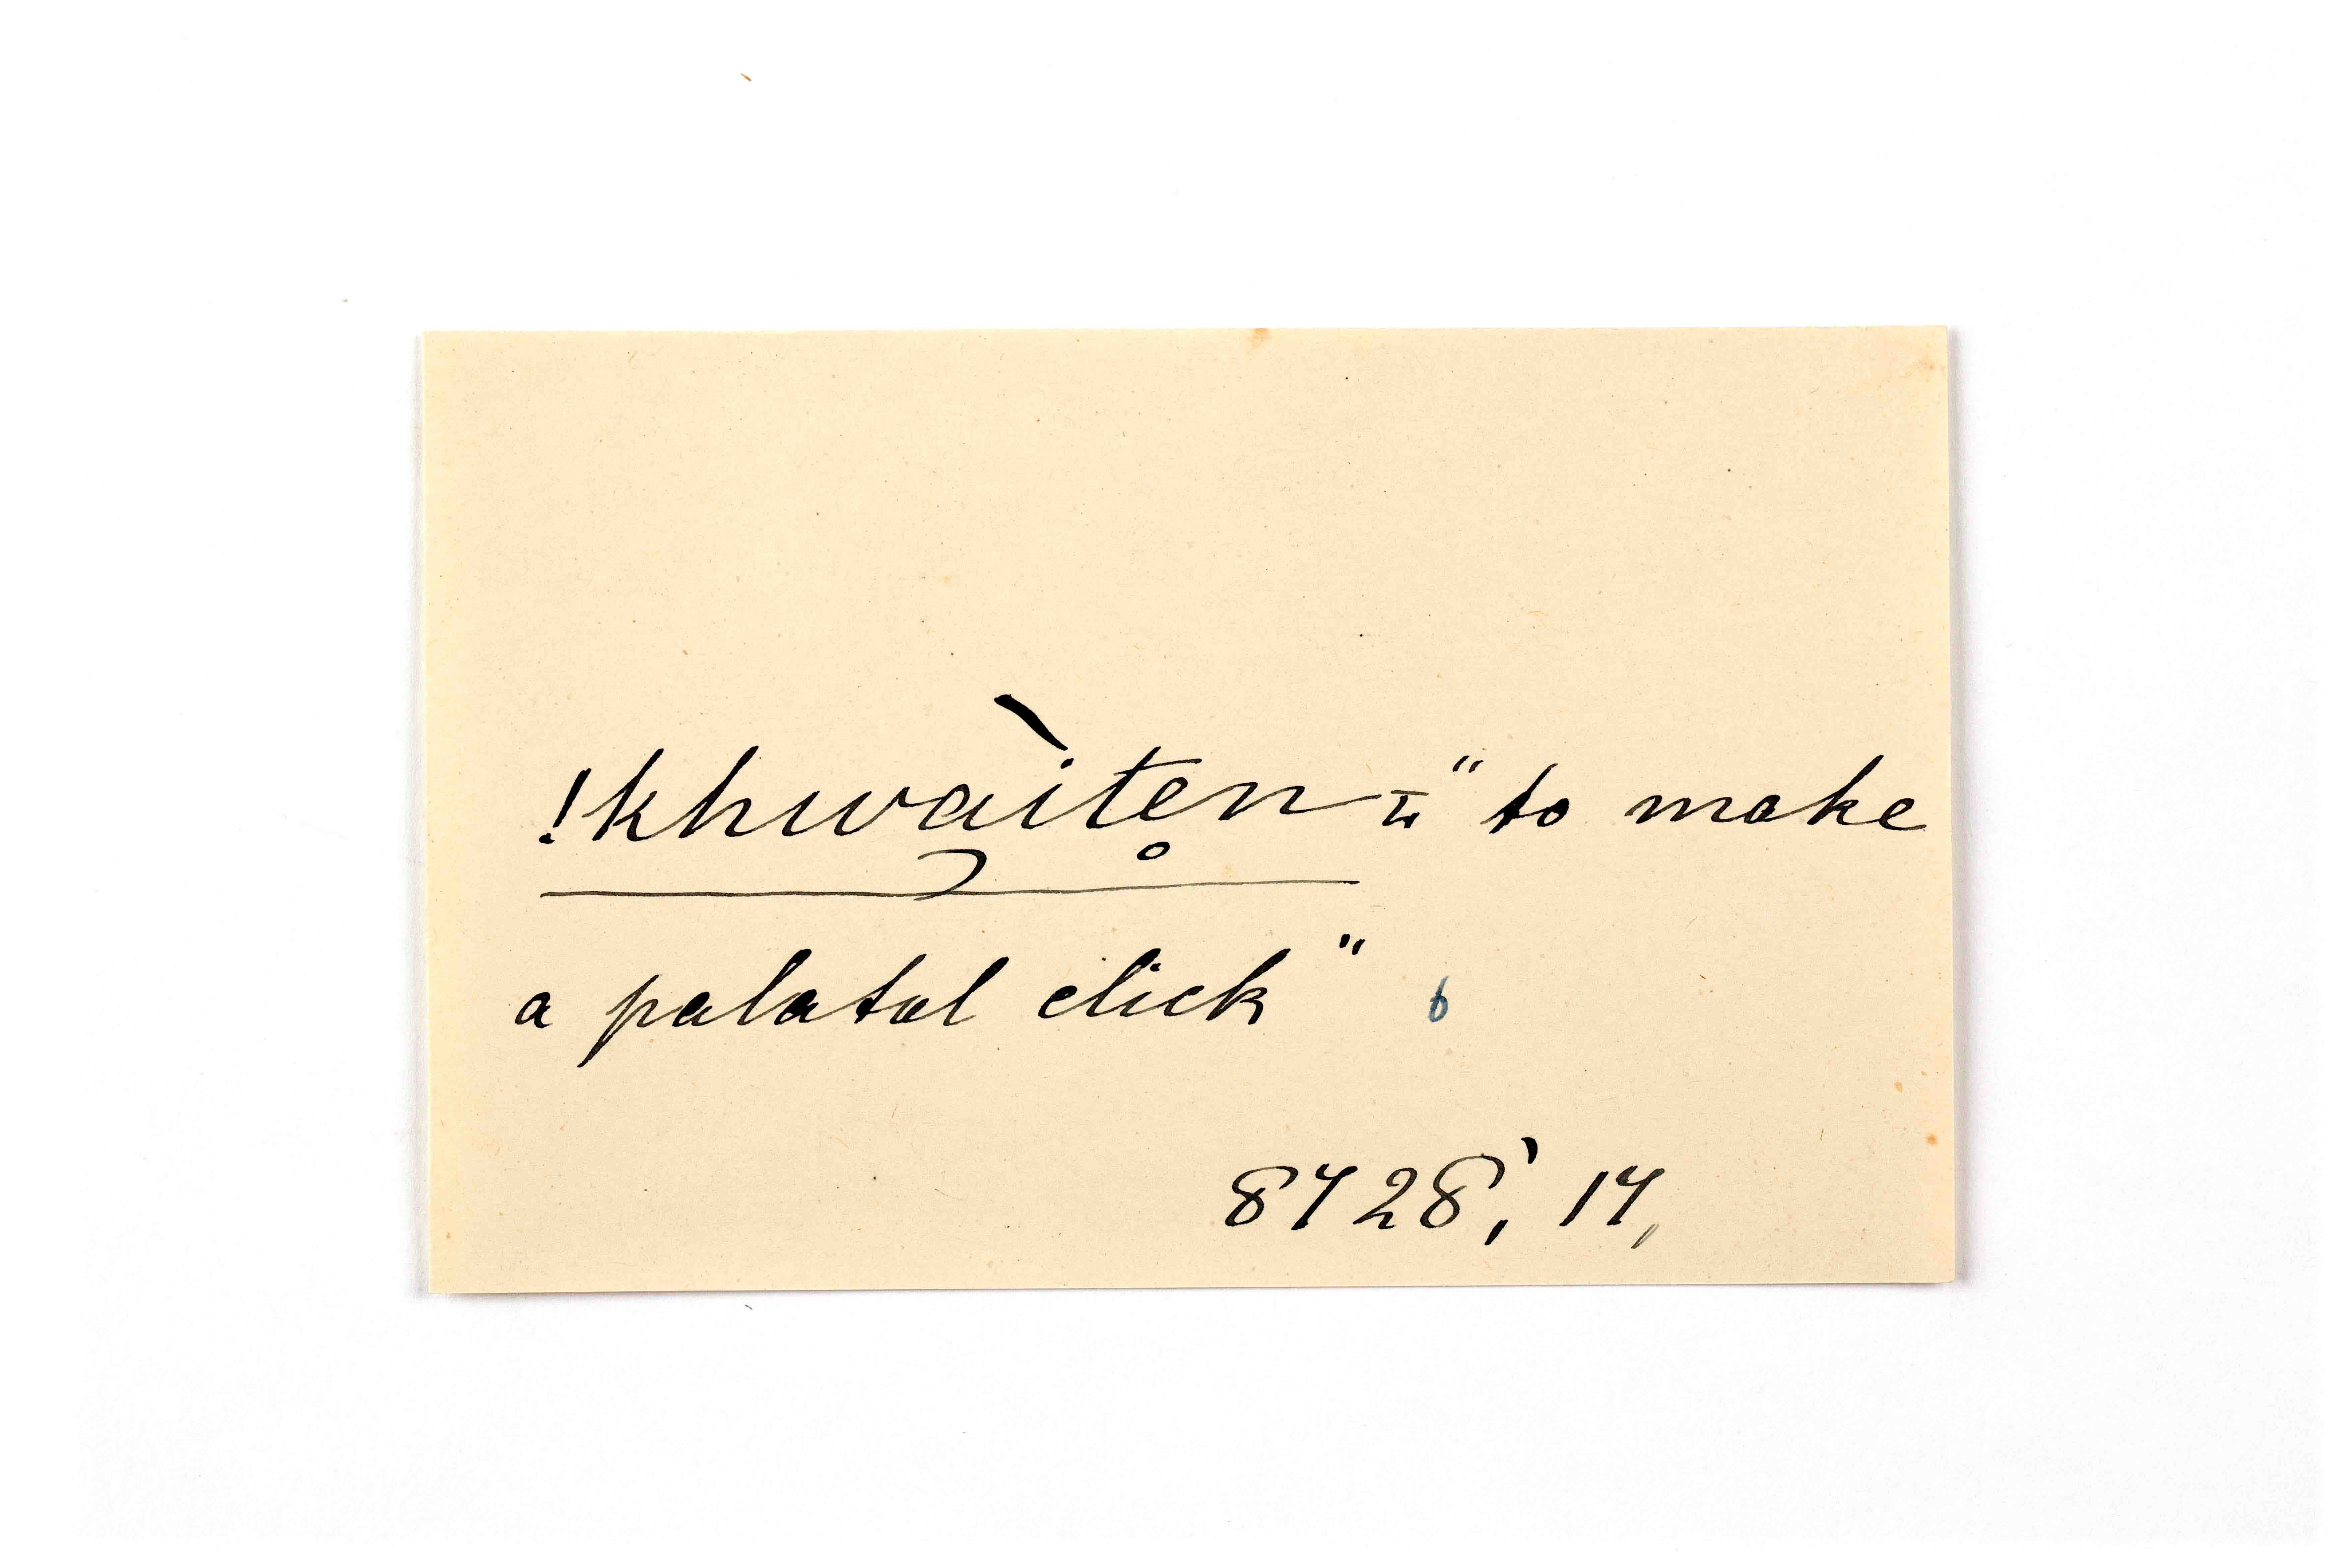 !khwa̠ìten̥ = "to make
a palatal click" 6
8428', 14,